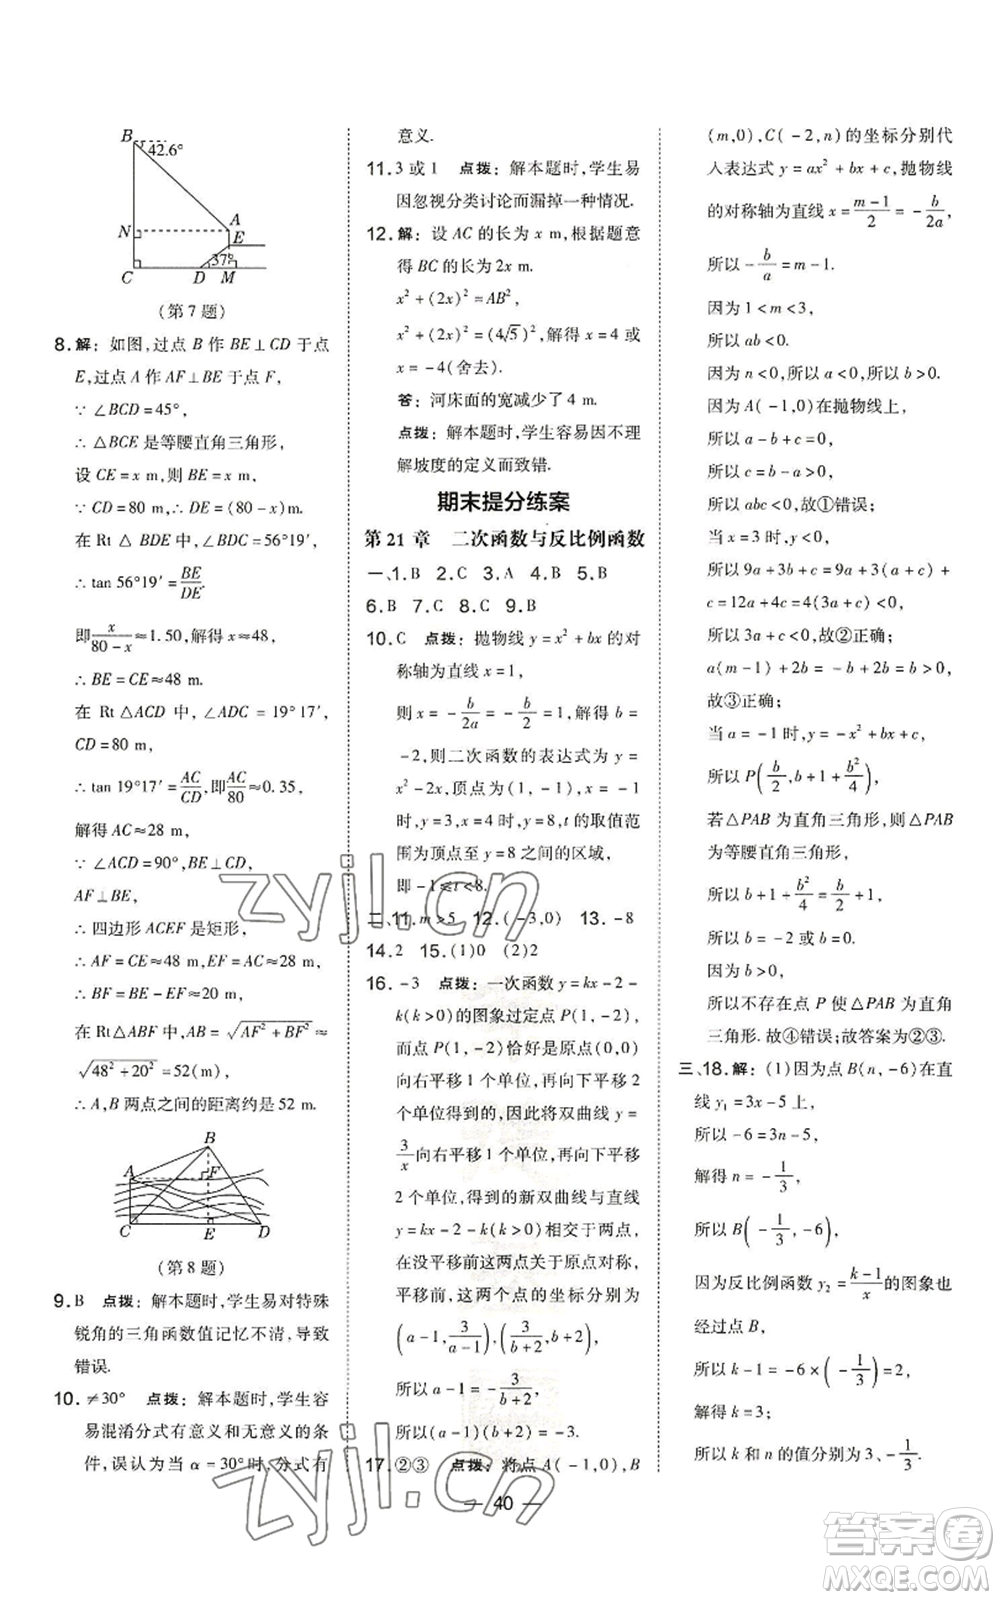 B
42.6°
A
N
E
37°
C D M
(第7题)
8.解:如图,过点 B 作 BE⊥CD 于点
E,过点 A 作 AF⊥BE 于点 F,
∵∠BCD=45°,
∴△BCE 是等腰直角三角形,
设 CE=x m,则 BE=x m,
∵CD=80 m,∴DE=(80-x)m,
在 Rt△BDE 中,∠BDE=56°19′,
∴tan 56°19′=BE/DE.
即x/(80-x)≈1.50,解得 x≈48,
∴BE=CE≈48 m.
在 Rt△ACD 中,∠ADC=19°17′,
CD=80 m,
∴tan 19°17′=AC/CD,即AC/80≈0.35,
解得 AC≈28 m,
∵∠ACD=90°,BE⊥CD,
AF⊥BE,
∴四边形 ACEF 是矩形,
∴AF=CE≈48 m,EF=AC≈28 m,
∴BF=BE-EF≈20 m,
在 Rt△ABF 中,AB=√(AF²+BF²)≈
√(48²+20²)=52(m),
∴A,B 两点之间的距离约是 52 m.
B
A F
C E D
(第8题)
9.B 点拨:解本题时,学生易对特殊
锐角的三角函数值记忆不清,导致
错误.
10.≠30° 点拨:解本题时,学生容
易混淆分式有意义和无意义的条
件,误认为当 α=30°时,分式有
意义.
11.3 或 1 点拨:解本题时,学生易
因忽视分类讨论而漏掉一种情况.
12.解:设 AC 的长为 x m,根据题意
得 BC 的长为 2x m.
x²+(2x)²=AB²,
x²+(2x)²=(4√5)²,解得 x=4 或
x=-4(舍去).
答:河床面的宽减少了 4 m.
点拨:解本题时,学生容易因不理
解坡度的定义而致错.
期末提分练案
第 21 章 二次函数与反比例函数
一、1.B 2.C 3.A 4.B 5.B
6.B 7.C 8.C 9.B
10.C 点拨:抛物线 y=x²+bx 的对
称轴为直线 x=1,
则 x=-b/2a=-b/2=1,解得 b=
-2,则二次函数的表达式为 y=
x²-2x,顶点为(1,-1),当 x=-1
时,y=3,当 x=4 时,y=8,t 的取值范
围为顶点至 y=8 之间的区域,
即-1≤t<8.
二、11.m>5 12.(-3,0) 13.-8
14.2 15.(1)0 (2)2
16.-3 点拨:一次函数 y=kx-2-
k(k>0)的图象过定点 P(1,-2),
而点 P(1,-2)恰好是原点(0,0)
向右平移 1 个单位,再向下平移 2
个单位得到的,因此将双曲线 y=
3/x向右平移 1 个单位,再向下平移
2 个单位,得到的新双曲线与直线
y=kx-2-k(k>0)相交于两点,
在没平移前这两点关于原点对称,
平移前,这两个点的坐标分别为
(a-1,3/(a-1)),(3/(b+2),b+2),
所以 a-1=-3/(b+2),
所以(a-1)(b+2)=-3.
17.②③ 点拨:将点 A(-1,0),B
(m,0),C(-2,n)的坐标分别代
入表达式 y=ax²+bx+c,抛物线
的对称轴为直线 x=(m-1)/2=-b/2a,
所以-b/a=m-1.
因为 1<m<3,
所以 ab<0.
因为 n<0,所以 a<0,所以 b>0.
因为 A(-1,0)在抛物线上,
所以 a-b+c=0,
所以 c=b-a>0,
所以 abc<0,故①错误;
当 x=3 时,y<0,
所以 9a+3b+c=9a+3(a+c)+
c=12a+4c=4(3a+c)<0,
所以 3a+c<0,故②正确;
a(m-1)+2b=-b+2b=b>0,
故③正确;
当 a=-1 时,y=-x²+bx+c,
所以 P(b/2,b+1+b²/4),
若△PAB 为直角三角形,则△PAB
为等腰直角三角形,
所以 b+1+b²/4=b/2+1,
所以 b=-2 或 b=0,
因为 b>0,
所以不存在点 P 使△PAB 为直角
三角形.故④错误;故答案为②③.
三、18.解:(1)因为点 B(n,-6)在直
线 y₁=3x-5 上,
所以-6=3n-5,
解得 n=-1/3,
所以 B(-1/3,-6),
因为反比例函数 y₂=(k-1)/x的图象也
经过点 B,
所以 k-1=-6×(-1/3)=2,
解得 k=3;
所以 k 和 n 的值分别为 3、-1/3.
— 40 —
zyjl.cn
zyjl.cn
答案卷
MXQE.COM